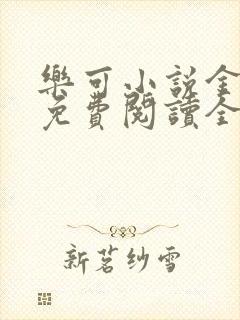 樂可小說全
免費閱讀全
新茗紗雪